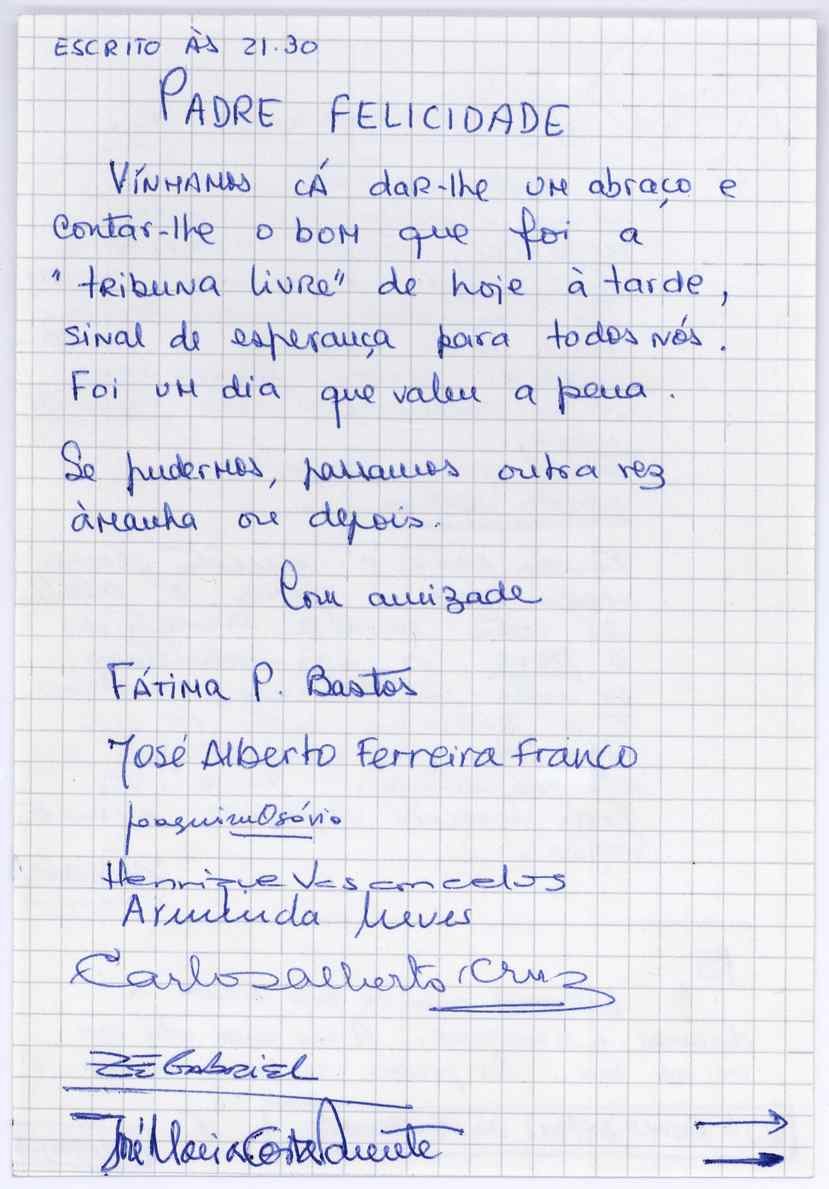 ESCRITO ÀS 21.30
PADRE FELICIDADE
VÍNHAMOS CÁ dar-lhe um abraço e
contar-lhe o bom que foi a
"tribuna livre" de hoje à tarde,
sinal de esperança para todos nós.
Foi um dia que valeu a pena.
Se pudermos, passamos outra vez
àmanha ou depois.
Com amizade
FÁTIMA P. Bastos
José Alberto Ferreira Franco
Joaquim Osório
Henrique Vasconcelos
Arminda Neves
Carlos alberto Cruz
ZÉ Gabriel
José Maria Costa